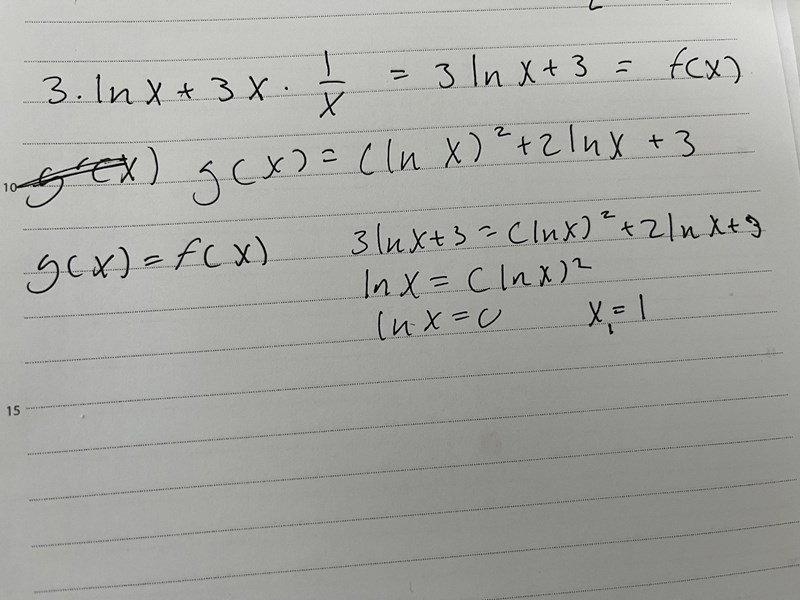 3·ln x + 3x · 1/x = 3 ln x + 3 = f(x)
10 g(x) = (ln x)² + 2 ln x + 3
g(x) = f(x) 3 ln x + 3 = (ln x)² + 2 ln x + 3
ln x = (ln x)²
ln x = 0 x₁ = 1
15